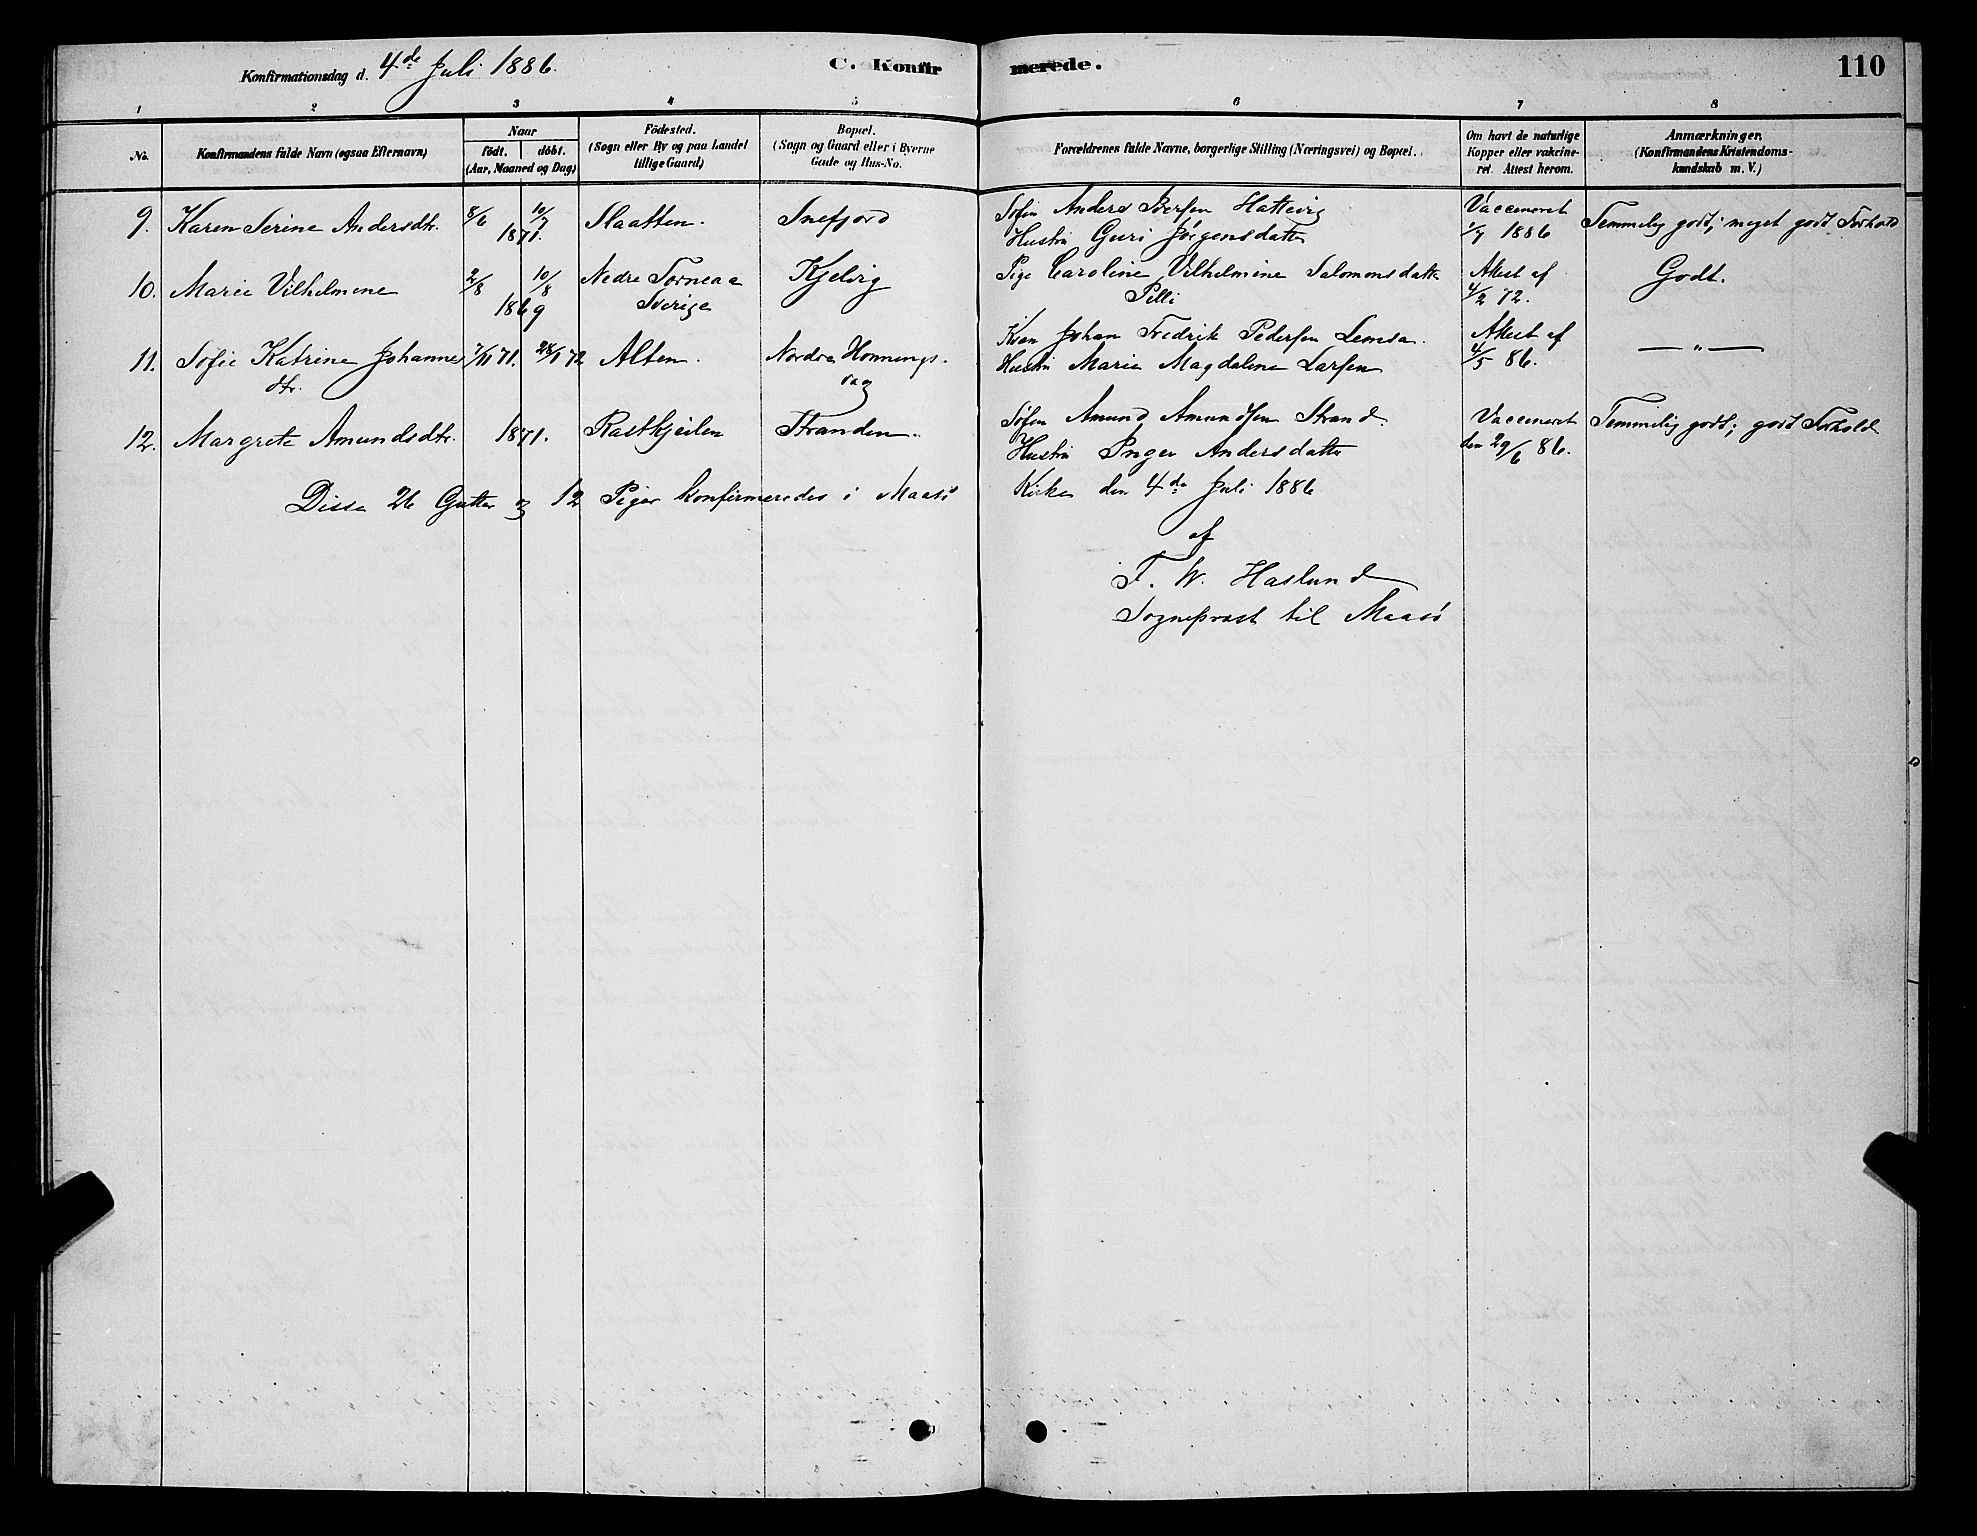 Konfirmationsdag d. 4de Juli 1886.
C. Konfirmerede.
110
1 2 3 4 5 6 7 8
No. Konfirmandens fulde Navn (ogsaa Efternavn)
Naar
födt. döbt.
(Aar, Maaned og Dag)
Födested.
(Sogn eller By og paa Landet
tillige Gaard)
Bopæl.
(Sogn og Gaard eller i Byerne
Gade og Hus-No.
Forældrenes fulde Navne, borgerlige Stilling (Næringsvei) og Bopæl.
Om havt de naturlige
Kopper eller vakcine-
ret. Attest herom.
Anmærkninger.
(Konfirmandens Kristendoms-
kundskab m. V.)
9. Karen Serine Andersdtr. 8/6 10/7 1871. Slaatten. Snefjord
Søfin Anders Iversen Hattevig
Hustru Guri Jørgensdatter
Vaccineret
1/7 1886
Temmelig godt; meget godt Forhold
10. Marie Vilhelmine 2/8 10/8 1869 Nedre Torneaa
Sverige
Kjelvig
Pige Caroline Vilhelmine Salomonsdatter
Pelli
Attest af
4/2 72.
Godt.
11. Sofie Katrine Johannes
dtr.
7/11 71. 28/1 72 Alten. Nordre Honnings-
vaag
Kven Johan Fredrik Pedersen Lemsa.
Hustru Maria Magdalena Larsen
Attest af
4/5 86.
— " —
12. Margrete Amundsdtr. 1871. Rastkjeilen Stranden.
Søfin Amund Amundsen Strand.
Hustru Inger Andersdatter
Vaccineret
den 29/6 86.
Temmelig godt; godt Forhold
Disse 26 Gutter og 12 Piger konfirmeredes i Maasø Kirke den 4de Juli 1886
af
F. W. Haslund
Sogneprest til Maasø